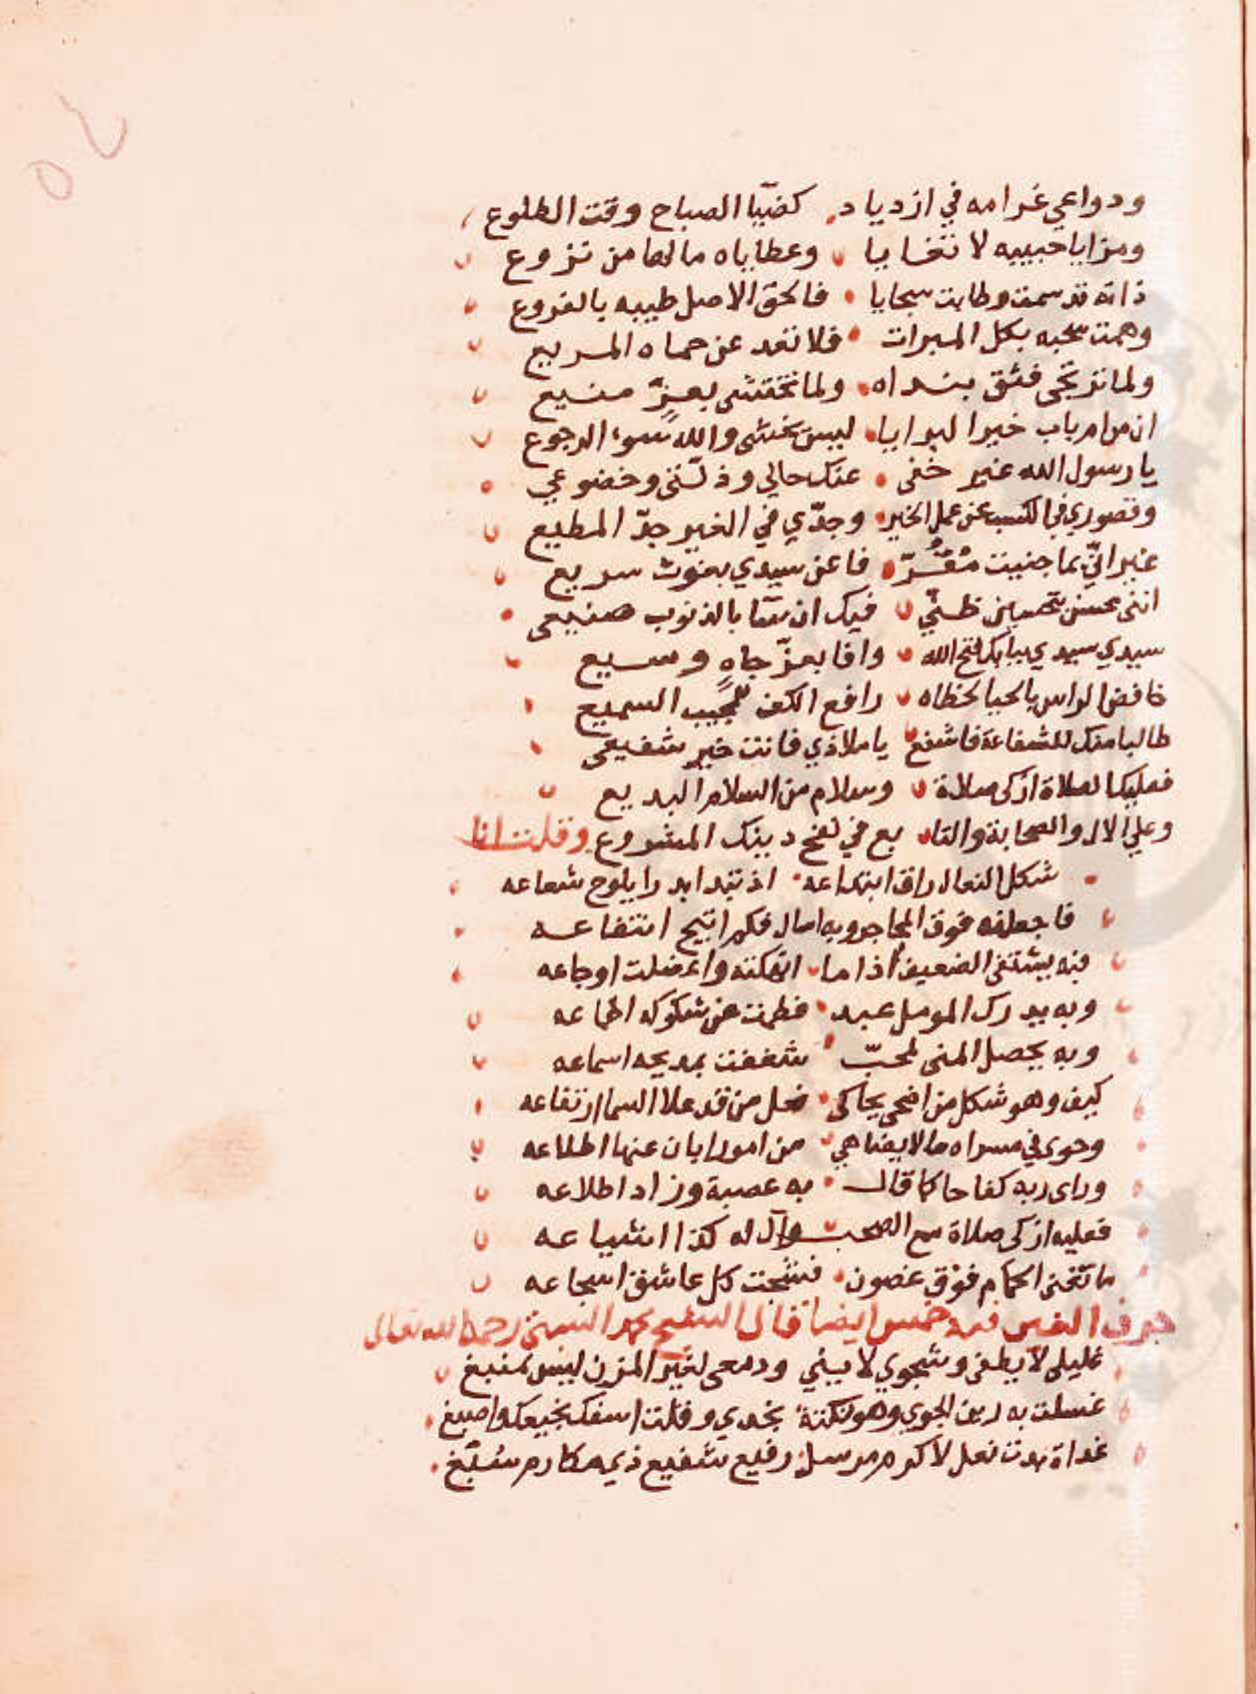 ودواعي غرامه في ازدياد كضيآ الصباح وقت الطلوع
ومزايا حبيبه لا تتغايا وعطاياه مالها من نزوع
ذاته قد سمت وطابت سجايا فالحق الاصل طيبه بالفروع
وهمت سحبه بكل المبرات فلا تعد عن حماه المريع
ولما ترتجى فثق بنداه ولما تختشى بعزّ منيع
ان من ام باب خير البرايا ليس يخشى والله سوء الرجوع
يا رسول الله غير خفى عنك حالي وذلتى وخضوعي
وقصوري في الكسب عن عمل الخير وجدّي في الغير جدّ المطيع
غير انّي بما جنيت مُقُرّ فاعن سيدي بغوث سريع
اننى محسن بتحسين ظنّي فيك ان سآ بالذنوب صنيعى
سيدي سيدي ببابك فتح الله وافا بعزّ جاهٍ وسيع
خافض الراس بالحيا لخطاه رافع الكف للمجيب السميع
طالبا منك للشفاعة فاشفع يا ملاذي فانت خير شفيعى
فعليك الصلاة ازكى صلاة وسلام من السلام البديع
وعلي الال والصحابة والتا بع في نهج دينك المشروع وقلت انا
شكل النعال راق ابتداعه اذ تبدا بدرا يلوح شعاعه
فاجعلنه فوق المحاجر وبه اسال فكم اتيح انتفاعه
فبه يشتفى الضعيف اذا ما انهكته واعضلت اوجاعه
وبه يدرك المومل عبد فطمت عن شكوكه اطماعه
وبه يحصل المنى لمحبّ شغفت بمديحه اسماعه
كيف وهو شكل من اضحى يحاكى نعل من قد علا السما ارتفاعه
وحوى في مسراه ما لا يضاهي من امور ابان عنها اطلاعه
وراى ربه كفاحا كما قال به عصبة وزاد اطلاعه
فعليه ازكى صلاة مع الصحب وآل له كذا اشياعه
ما تغنى الحمام فوق غصون فشجت كل عاشق اسجاعه
حرف الغين فيه خمس ايضا قال الشيخ محمد السبتى رحمه الله تعالى
غليلى لا يطفى وشجوي لا يبني ودمعى لغير المزن ليس بمنبغ
غسلت به رين الجوي وهو نكتة بخدي وقلت اسفك نجيعك واصبغ
غداة بدت نعل لاكرم مرسل رفيع شفيع ذي مكارم سُبّغ